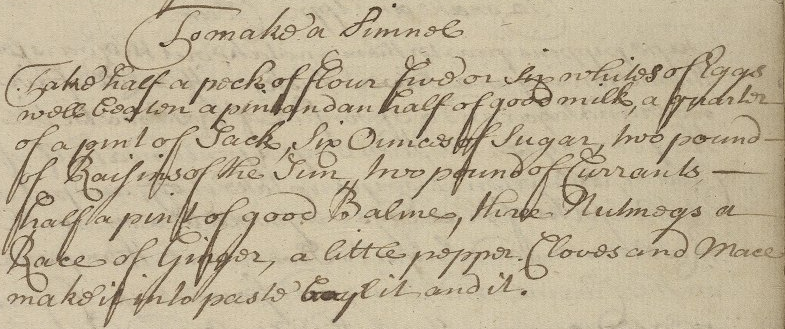 To make a Simnel
Take half a peck of flour five or six whites of Eggs
well beaten a pint and an half of good milk, a quarter
of a pint of Sack, Six Ounces of Sugar, two pound
of Raisins of the Sun, two pound of Currants
half a pint of good Balme, three Nutmegs a
Race of Ginger, a little pepper. Cloves and Mace
make it into paste boyl it and it.